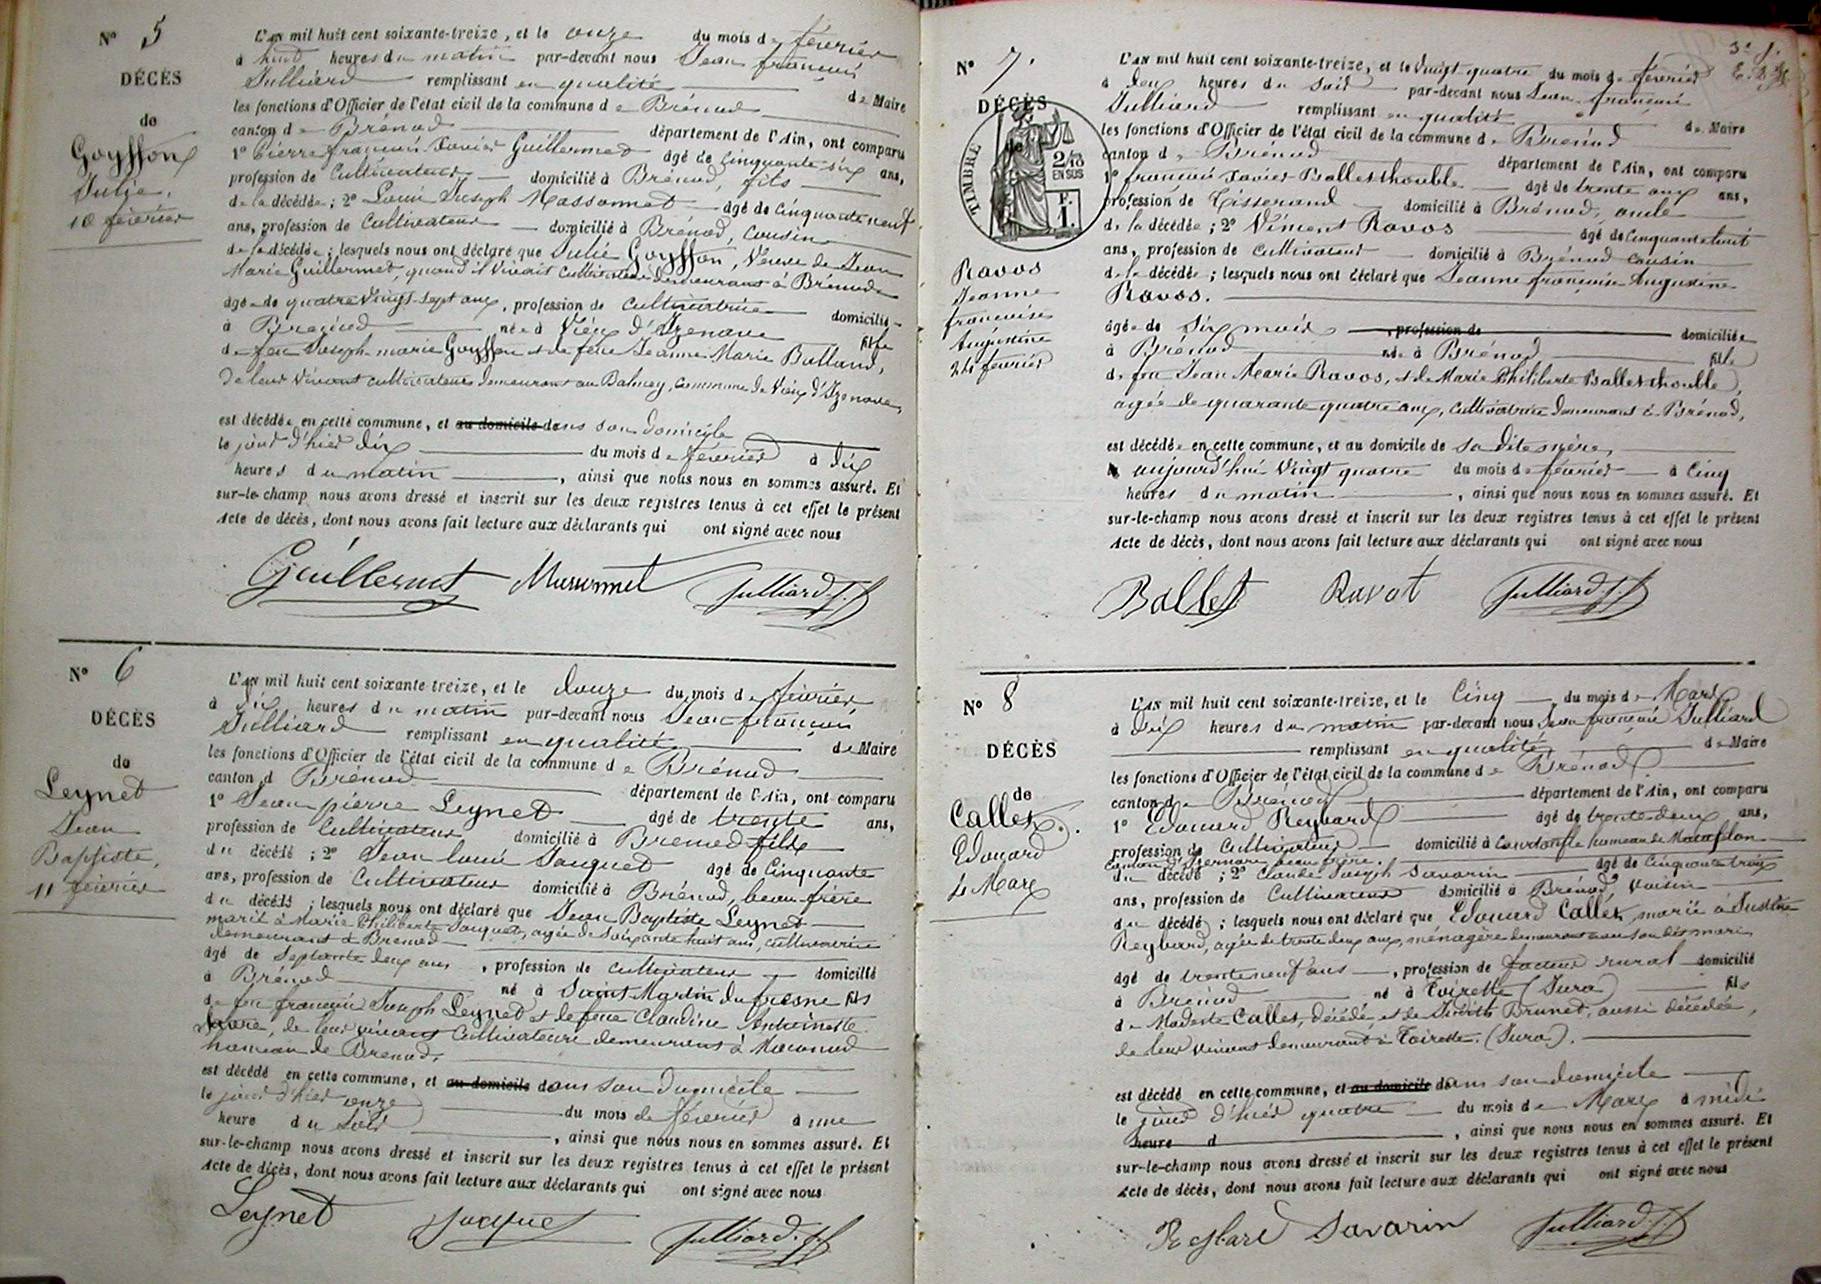 N° 5
DÉCÈS
de
Goyffon
Julie.
10 février
L'AN mil huit cent soixante-treize, et le onze du mois de février
à huit heures du matin par-devant nous Jean françois
Julliard remplissant en qualité de Maire
les fonctions d'Officier de l'état civil de la commune de Brénod
canton de Brénod département de l'Ain, ont comparu
1° Pierre françois Xavier Guillermet âgé de Cinquante six ans,
profession de Cultivateur domicilié à Brénod, fils
de la décédée ; 2° Louis Joseph Massonnet âgé de Cinquante neuf
ans, profession de Cultivateur domicilié à Brénod, Cousin
de la décédée ; lesquels nous ont déclaré que Julie Goyffon, Veuve de Jean
Marie Guillermet, quand il Vivait cultivateur demeurant à Brenod
âgée de quatre Vingt-Sept ans, profession de cultivatrice domiciliée
à Brenod née à Vieux d'Izenave fille
de feu Joseph-marie Goyffon et de feue Jeanne Marie Balland,
de leur Vivant cultivateurs demeurant au Balmey, commune de Vieux d'Izenave,
est décédée en cette commune, et au domicile dans son domicile
le jour d'hier dix du mois de février à dix
heures du matin , ainsi que nous nous en sommes assuré. Et
sur-le-champ nous avons dressé et inscrit sur les deux registres tenus à cet effet le présent
Acte de décès, dont nous avons fait lecture aux déclarants qui ont signé avec nous
Guillermet Massonnet Julliard J. f
N° 6
DÉCÈS
de
Leynet
Jean
Baptiste,
11 février
L'AN mil huit cent soixante-treize, et le douze du mois de février
à dix heures du matin par-devant nous Jean françois
Julliard remplissant en qualité de Maire
les fonctions d'Officier de l'état civil de la commune de Brénod
canton d Brénod département de l'Ain, ont comparu
1° Jean pierre Leynet âgé de trente ans,
profession de Cultivateur domicilié à Brenod fils
du décédé ; 2° Jean louis Jacquet âgé de Cinquante
ans, profession de Cultivateur domicilié à Brénod, beau-frère
du décédé ; lesquels nous ont déclaré que Jean Baptiste Leynet
marié à Marie Philiberte Jacquet, agée de Soixante huit ans, cultivatrice
demeurant à Brenod
âgé de Septante deux ans , profession de cultivateur domicilié
à Brénod né à Saint Martin du fresne fils
de feu françois Joseph Leynet et de feue Claudine Antoinette
de leur vivant Cultivateurs demeurant à Maconod
hameau de Brenod.
est décédé en cette commune, et au domicile dans son domicile
le jour d'hier onze du mois de février à une
heure du soir , ainsi que nous nous en sommes assuré. Et
sur-le-champ nous avons dressé et inscrit sur les deux registres tenus à cet effet le présent
Acte de décès, dont nous avons fait lecture aux déclarants qui ont signé avec nous
Leynet Jacquet Julliard. J. f
3e f.
N° 7.
DÉCÈS
de
TIMBRE
2/10
EN SUS
F.
1.
Ravos
Jeanne
françoise
Augustine
24 février
L'AN mil huit cent soixante-treize, et le Vingt quatre du mois de février
à deux heures du Soir par-devant nous Jean françois
Julliard remplissant en qualité de Maire
les fonctions d'Officier de l'état civil de la commune de Brénod
canton de Brénod département de l'Ain, ont comparu
1° françois Xavier Ballet thouble âgé de trente ans,
profession de Tisserand domicilié à Brénod, oncle
de la décédée ; 2° Vincent Ravos âgé de Cinquante huit
ans, profession de cultivateur domicilié à Brénod cousin
de la décédée ; lesquels nous ont déclaré que Jeanne françoise Augustine
Ravos.
âgée de Six mois , profession de domiciliée
à Brénod née à Brénod fille
de feu Jean Marie Ravos, et de Marie Philiberte Ballet thouble,
agée de quarante quatre ans, cultivatrice demeurant à Brénod,
est décédée en cette commune, et au domicile de sa dite mère,
aujourd'hui Vingt quatre du mois de février à Cinq
heures du matin , ainsi que nous nous en sommes assuré. Et
sur-le-champ nous avons dressé et inscrit sur les deux registres tenus à cet effet le présent
Acte de décès, dont nous avons fait lecture aux déclarants qui ont signé avec nous
Ballet Ravot Julliard. J. f
N° 8
DÉCÈS
de
Callet
Edouard
4 Mars
L'AN mil huit cent soixante-treize, et le Cinq du mois de Mars
à dix heures du matin par-devant nous Jean françois Julliard
remplissant en qualité de Maire
les fonctions d'Officier de l'état civil de la commune de Brénod
canton de Brénod département de l'Ain, ont comparu
1° Edouard Reybard âgé de trente deux ans,
profession de Cultivateur domicilié à Courtonfle hameau de Matafelon
Canton d'Izernore beau frère.
du décédé ; 2° Claude Joseph Savarin âgé de Cinquante trois
ans, profession de Cultivateur domicilié à Brénod, Voisin
du décédé ; lesquels nous ont déclaré que Edouard Callet, marié à Justine
Reybard, agée de trente deux ans, ménagère demeurant avec son dit mari,
âgé de trente neuf ans , profession de facteur rural domicilié
à Brénod né à Toirette (Jura) fils
de Modeste Callet, décédé et de Judith Brunet, aussi décédée,
de leur vivant demeurant à Toirette. (Jura).
est décédé en cette commune, et au domicile dans son domicile
le jour d'hier quatre du mois de Mars à midi
heure d , ainsi que nous nous en sommes assuré. Et
sur-le-champ nous avons dressé et inscrit sur les deux registres tenus à cet effet le présent
Acte de décès, dont nous avons fait lecture aux déclarants qui ont signé avec nous
Reybard Savarin Julliard. J. f